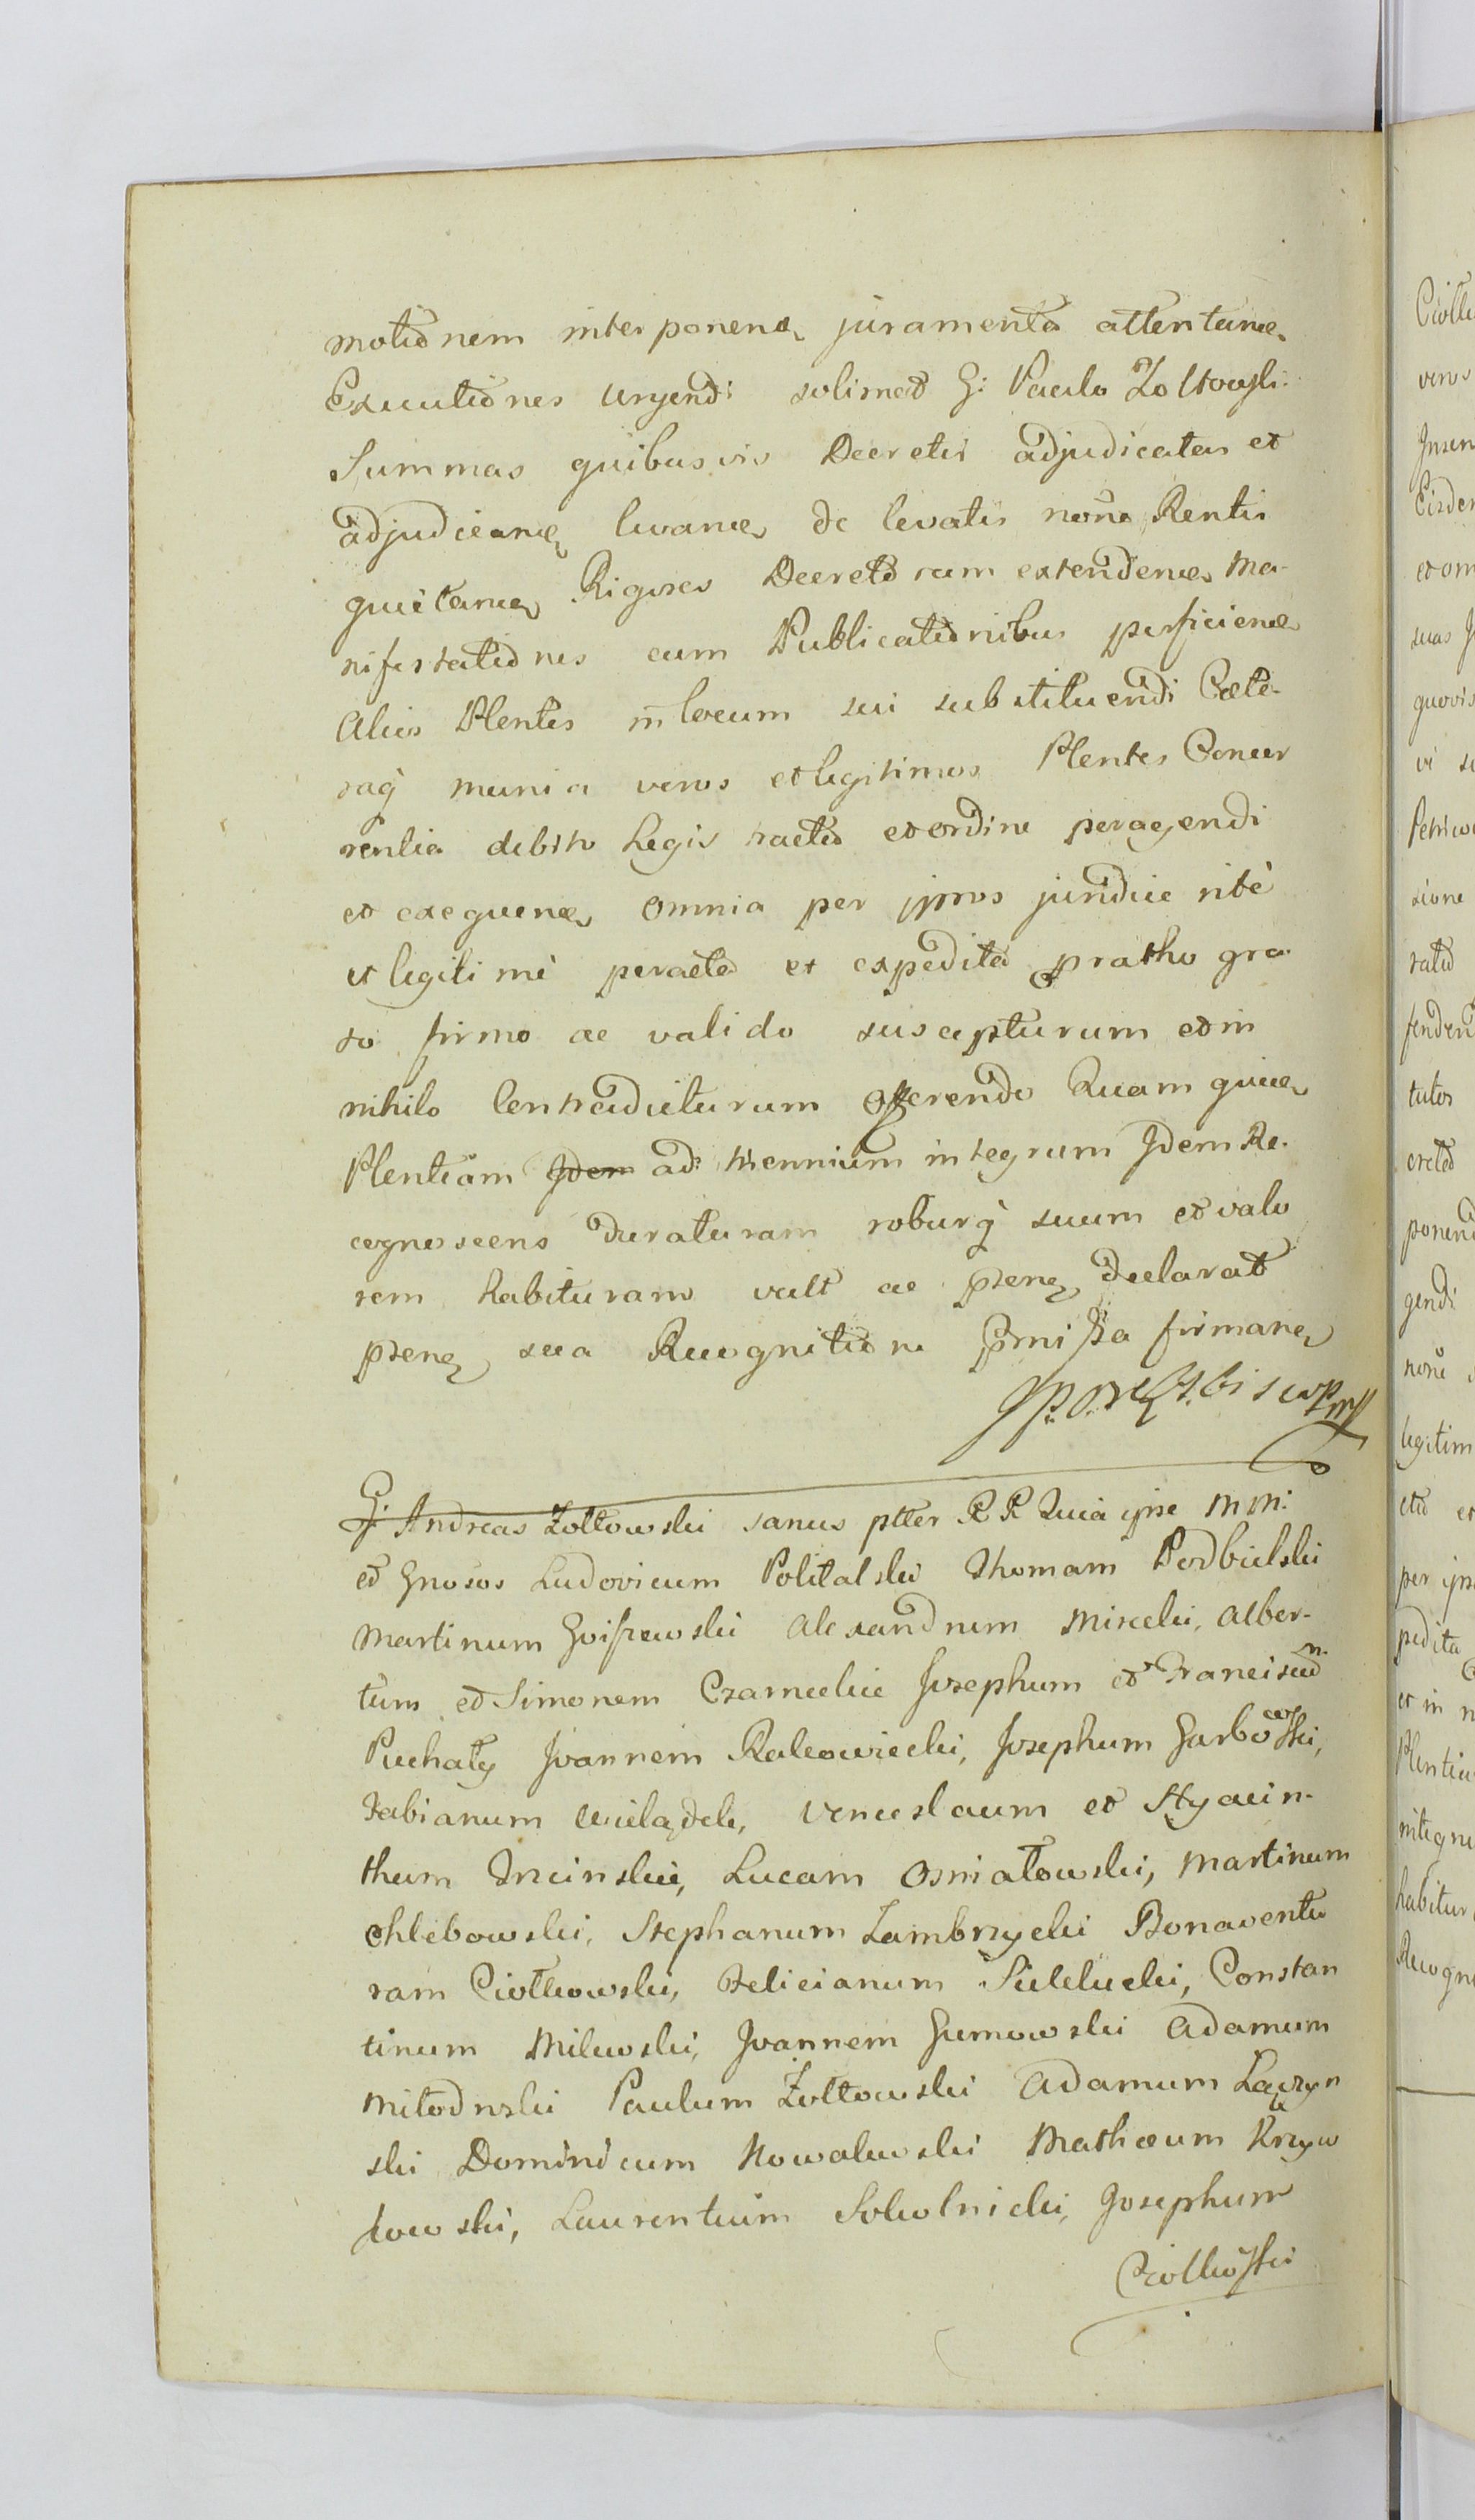 motionem interponend, juramenta attentand,
Executiones urgendi solimet G: Paulo Zoltowski
Summas quibusvis Decretis adjudicatas et
adjudicand, levand, de levatis noñe Rentis
quietand, Rigores Decretorum extendend, Ma-
nifestationes cum Publicationibus perficiend,
Alios Plentes in locum sui substituendi Caete-
raq munia veros et legitimos Plentes Concer
nentia debito Legis tractu et ordine peragendi
et exequend, Omnia per ipsos juridice ritè
et legitimè peracta et expedita pro ratho gra
to firmo ac valido suscepturum et in
nihilo Contradicturum offerendo Quam quid,
Plentiam ad triennium integrum Idem Re-
cognoscens duraturam roburq suum et valo
rem habituram vult ac psene, declarat
psene, sua Recognitione pmissa firmand,

G. Andreas Zołtowski sanus ptter RR Quia ipse MM:
et Gnosos Ludovicum Politalski Thomam Podbielski
Martinum Alexandrum Mirecki, Alber-
tum et Simonem Czarneckie Josephum et Franciscum
Puchały Joannem Rakowiecki, Josephum Garbowski,
Fabianum Wielądek, Venceslaum et Hyacin-
thum Trcinskie, Lucam Osmiałowski, Martinum
Chlebowski, Stephanum Zambrzycki Bonaventu
ram Ciołkowski, Felicianum Sielucki, Constan
tinum Milewski, Joannem Gumowski Adamum
Miłodroski Paulum Żołtowski Adamum Łączyn
ski Dominicum Kowalewski Mathaeum Krzyw
kowski, Laurentium Sokolnicki, Josephum
Ciołkowski
Ciołk
veros
Insen
Eisdem
et om
suas J
quovis
vi su
Petrico
sione
ratio
fendend
tutos
creto
ponend
gendi
noñe
legitim
ctio et
per ips
pedita
et in n
Plentia
integru
habitur
Recogni